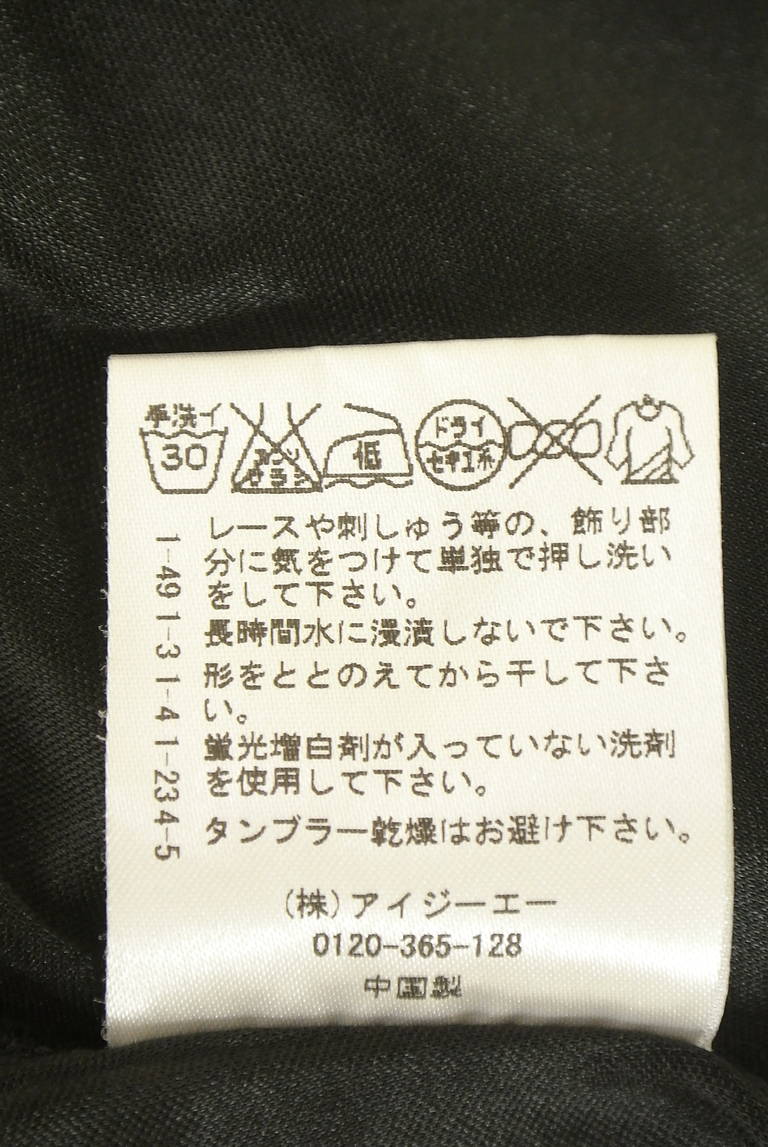 手洗イ
30
エンソ
サラシ
低
ドライ
セキユ系
レースや刺しゅう等の、飾り部
分に気をつけて単独で押し洗い
をして下さい。
長時間水に浸漬しないで下さい。
形をととのえてから干して下さ
い。
蛍光増白剤が入っていない洗剤
を使用して下さい。
タンブラー乾燥はお避け下さい。
1-49 1-3 1-4 1-23 4-5
(株)アイジーエー
0120-365-128
中国製